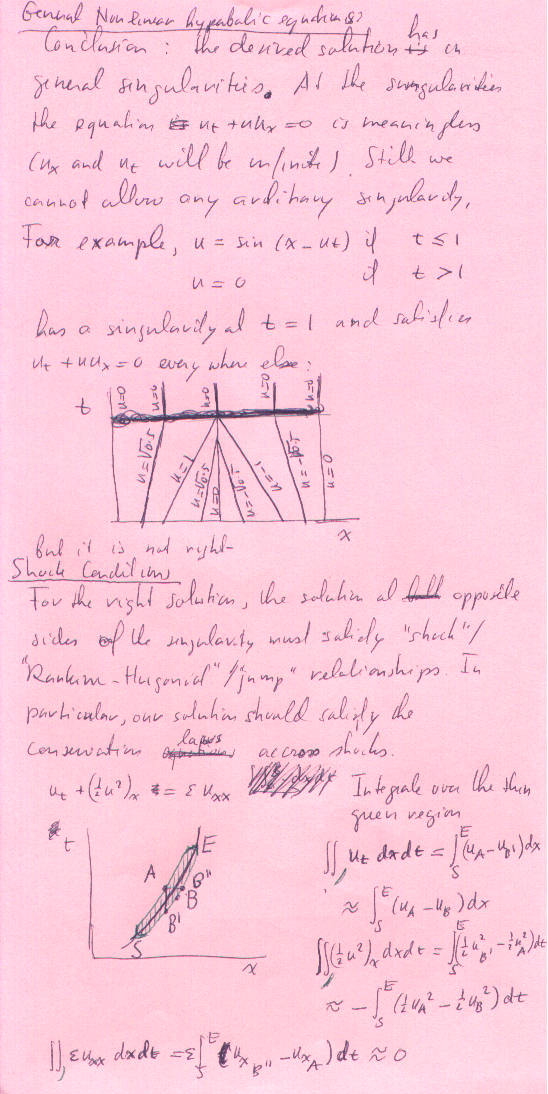 General Nonlinear hyperbolic equations:
Conclusion : the derived solution has in
general singularities. At the singularities
the equation ut + uux = 0 is meaningless
(ux and ut will be infinite). Still we
cannot allow any arbitrary singularity.
For example, u = sin (x - ut) if t ≤ 1
u = 0 if t > 1
has a singularity at t = 1 and satisfies
ut + uux = 0 every where else:
t u=0 u=0 u=0 u=0 u=0
u=√0.5 u=1 u=√0.5 u=0 u=-√0.5 u=-1 u=-√0.5 u=0
x
but it is not right-
Shock Conditions
For the right solution, the solution at opposite
sides of the singularity must satisfy "shock"/
"Rankine-Hugoniot"/"jump" relationships. In
particular, our solution should satisfy the
conservation laws accross shocks.
ut + (½u²)x = ε uxx
Integrate over the thin
green region
t E A B'' B B' S x
∬ ut dxdt = ∫_S^E (uA - uB') dx
≈ ∫_S^E (uA - uB) dx
∬ (½u²)x dxdt = ∫_S^E (½u²B' - ½u²A) dt
≈ - ∫_S^E (½uA² - ½uB²) dt
∬ εuxx dxdt = ε ∫_S^E (ux B'' - ux A) dt ≈ 0